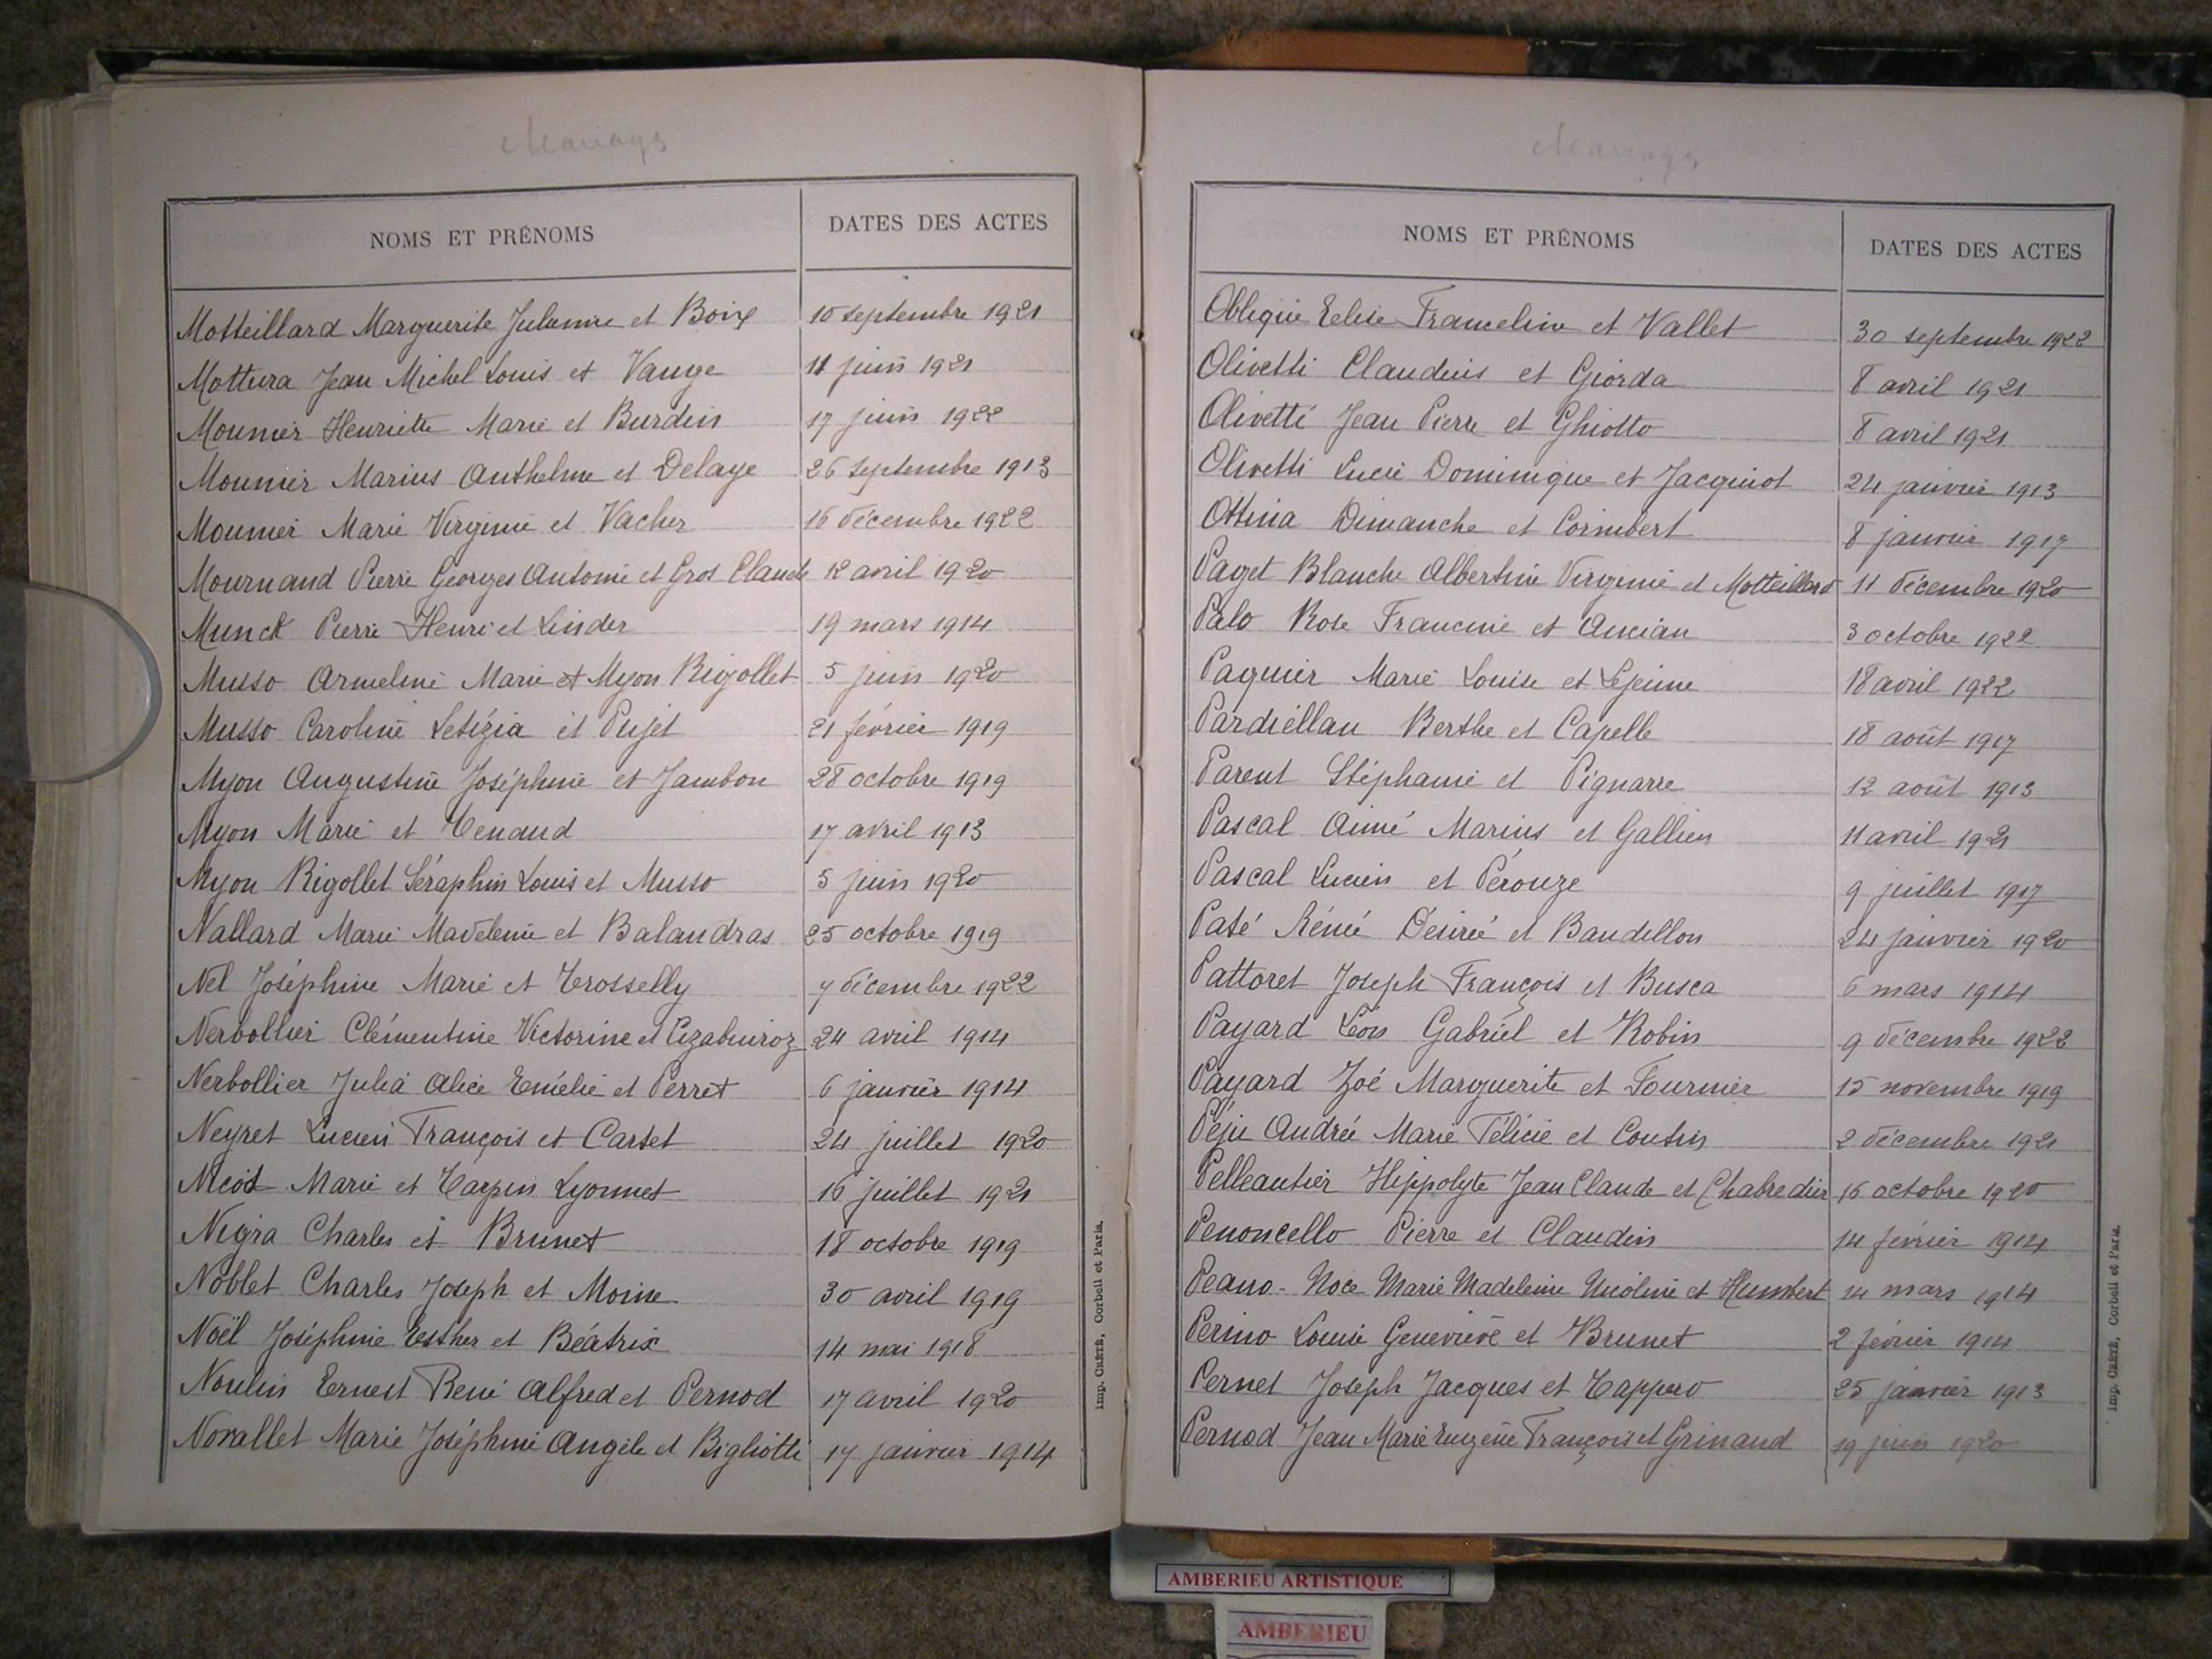 Mariages
NOMS ET PRÉNOMS
DATES DES ACTES
Motteillard Marguerite Julienne et Boix 10 septembre 1921
Mottura Jean Michel Louis et Vauge 11 juin 1921
Mounier Henriette Marie et Burdin 17 juin 1922
Mounier Marius Anthelme et Delaye 26 septembre 1913
Mounier Marie Virginie et Vacher 16 décembre 1922
Mournand Pierre Georges Antoine et Gros Claude 12 avril 1920
Munck Pierre Henri et Linder 19 mars 1914
Musso Armeline Marie et Myon Rigollet 5 juin 1920
Musso Caroline Letizia et Pujet 21 février 1919
Myon Augustine Joséphine et Jambon 28 octobre 1919
Myon Marie et Tenaud 17 avril 1913
Myon Rigollet Séraphin Louis et Musso 5 juin 1920
Nallard Marie Madeleine et Balandras 25 octobre 1919
Nel Joséphine Marie et Trosselly 7 décembre 1922
Nerbollier Clémentine Victorine et 24 avril 1914
Nerbollier Julia Alice Emélie et Perret 6 janvier 1914
Neyret Lucien François et Cartet 24 juillet 1920
Nicod Marie et Tarpin Lyonnet 16 juillet 1921
Nigra Charles et Brunet 18 octobre 1919
Noblet Charles Joseph et Moine 30 avril 1919
Noël Joséphine Esther et Béatrix 14 mai 1918
Noulin Ernest René Alfred et Pernod 17 avril 1920
Novallet Marie Joséphine Angèle et Bigliotti 17 janvier 1914
Imp. CRÉTÉ, Corbeil et Paris.
Mariages
NOMS ET PRÉNOMS
DATES DES ACTES
Elise Franceline et Vallet 30 septembre 1922
Olivetti Claudius et Giorda 8 avril 1921
Olivetti Jean Pierre et Ghiotto 8 avril 1921
Olivetti Lucie Dominique et Jacquinot 24 janvier 1913
Ottina Dimanche et Corimbert 8 janvier 1917
Paget Blanche Albertine Virginie et Motteillard 11 décembre 1920
Palo Rose Francine et Ancian 3 octobre 1922
Paquier Marie Louise et Lejeune 18 avril 1922
Pardiellan Berthe et Capelle 18 août 1917
Parent Stéphanie et Pignarre 12 août 1913
Pascal Aimé Marius et Gallien 11 avril 1921
Pascal Lucien et Pérouze 9 juillet 1917
Paté Réné Désiré et Baudellon 24 janvier 1920
Pattoret Joseph François et Busca 6 mars 1914
Payard Léon Gabriel et Robin 9 décembre 1922
Payard Zoé Marguerite et Fournier 15 novembre 1919
Péju Andrée Marie Félicie et Coutin 2 décembre 1921
Pelleautier Hippolyte Jean Claude et Chabredier 16 octobre 1920
Penoncello Pierre et Claudin 14 février 1914
Peano-Noce Marie Madeleine Nicoline et Humbert 14 mars 1914
Perino Louise Geneviève et Brunet 2 février 1914
Pernet Joseph Jacques et Tappero 25 janvier 1913
Pernod Jean Marie Eugène François et Grinand 19 juin 1920
Imp. CRÉTÉ, Corbeil et Paris.
AMBERIEU ARTISTIQUE
AMBERIEU